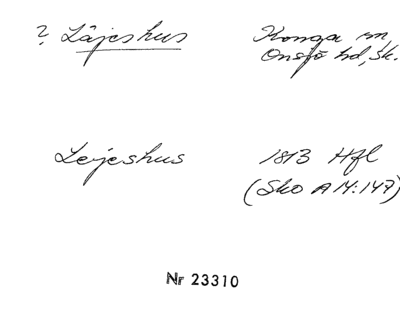 ? Låjeshus Konga sn,
Onsjö hd, Sk.
Lejeshus 1813 Hfl
(Sko A 14:147)
Nr 23310